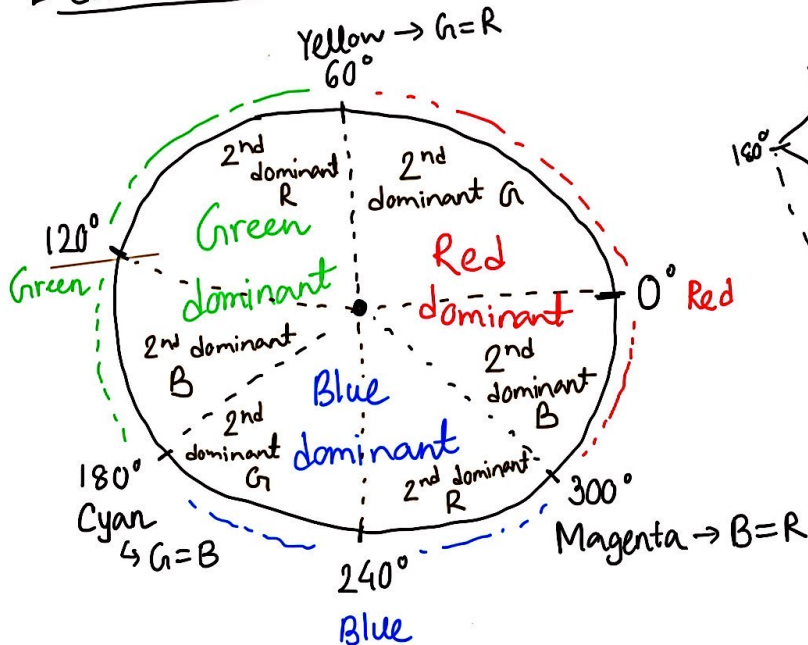 Yellow → G=R
60°
2nd
dominant
R
2nd
dominant G
180°
120°
Green
Green
dominant
Red
dominant
0° Red
2nd dominant
B
Blue
dominant
2nd
dominant
B
2nd
dominant
G
2nd dominant
R
180°
Cyan
↳ G=B
300°
Magenta → B=R
240°
Blue